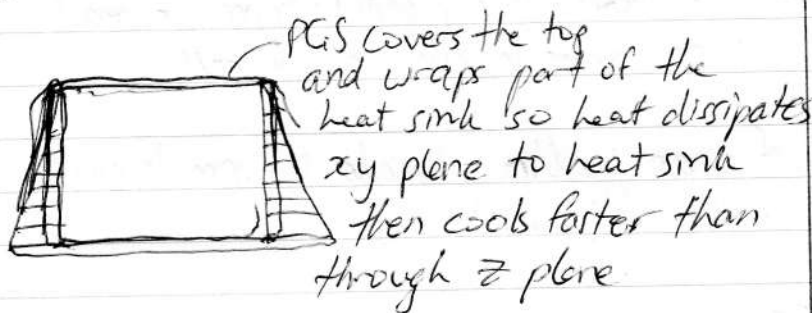 PGS covers the top
and wraps part of the
heat sink so heat dissipates
xy plane to heat sink
then cools faster than
through z plane